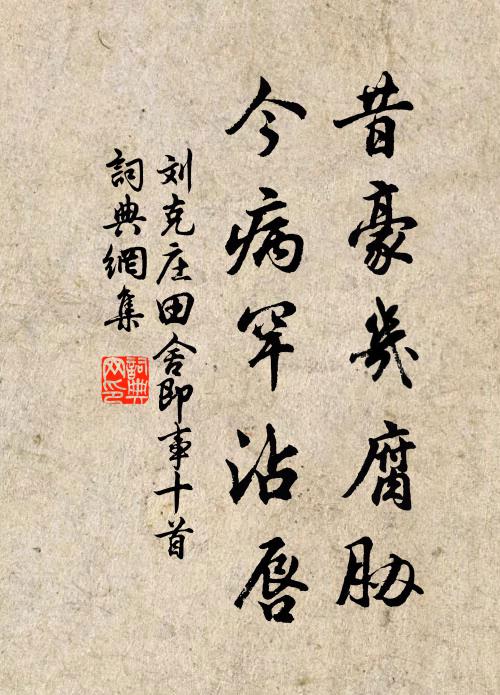 昔豪幾腐胁
今病罕沾唇
刘克庄田舍即事十首
詞典網集
詞典網印